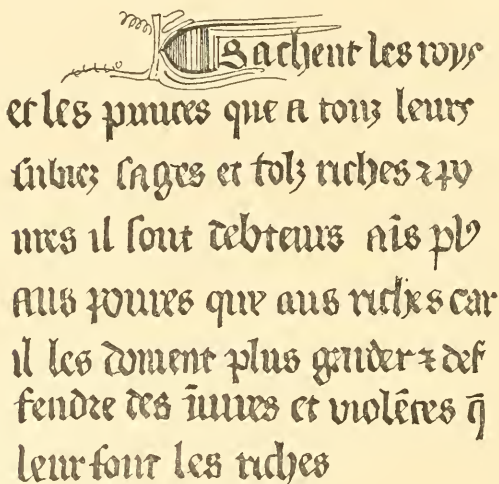 Sachent les roys
et les princes que a touz leurs
subiez sages et folz riches ⁊ po
ures il sont debteurs aīs plꝰ
aus poures que aus riches car
il les doiuent plus garder ⁊ def
fendre des īiures et violēces q̄
leur font les riches